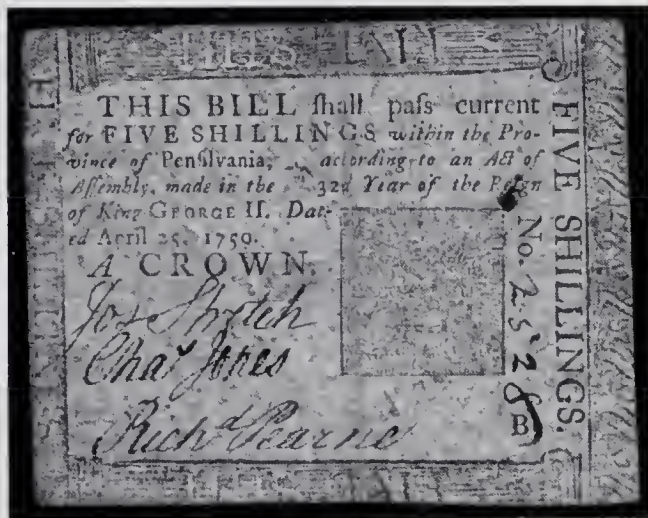 THIS BILL ſhall paſs current
for FIVE SHILLINGS within the Pro-
vince of Penſilvania, according to an Act of
Aſſembly, made in the 32d Year of the Reign
of King GEORGE II. Dat-
ed April 25, 1759.
A CROWN.
Chaˢ Jones
Richᵈ Pearne
FIVE SHILLINGS.
No. 2528
B